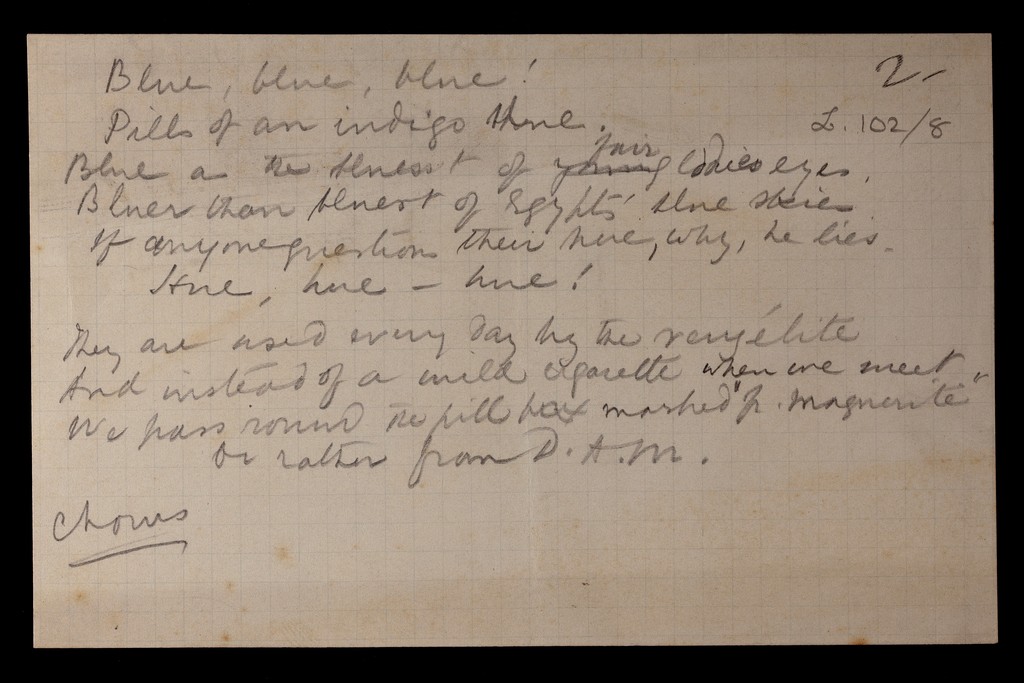 2-
Blue, blue, blue!
Pills of an indigo blue.
L. 102/8
Blue as the bluest of young fair ladies eyes,
Bluer than bluest of Egypts' blue skies
If anyone questions their hue, why, he lies.
Hue, hue - hue!
They are used every day by the very élite
And instead of a mild cigarette when we meet
We pass round the pill box marked "fr. Marguerite"
Or rather from D.A.M.
Chorus